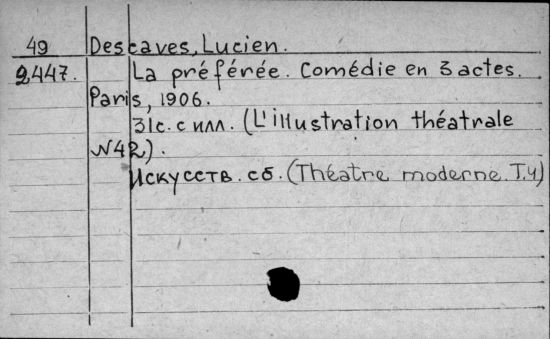 49 Descaves, Lucien.
2447. La préférée. Comédie en 3 actes.
Paris, 1906.
31с. с илл. (L'illustration théatrale
N42).
Искусств. сб. (Théatre moderne. T.4)